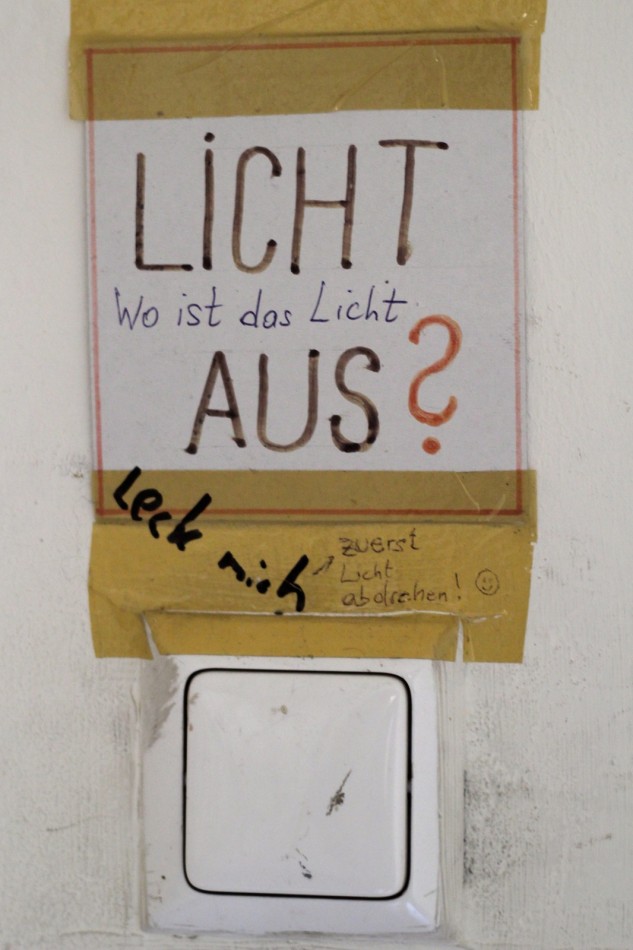 LiCHT
Wo ist das Licht
AUS?
Leck
mich
zuerst
Licht
abdrehen!